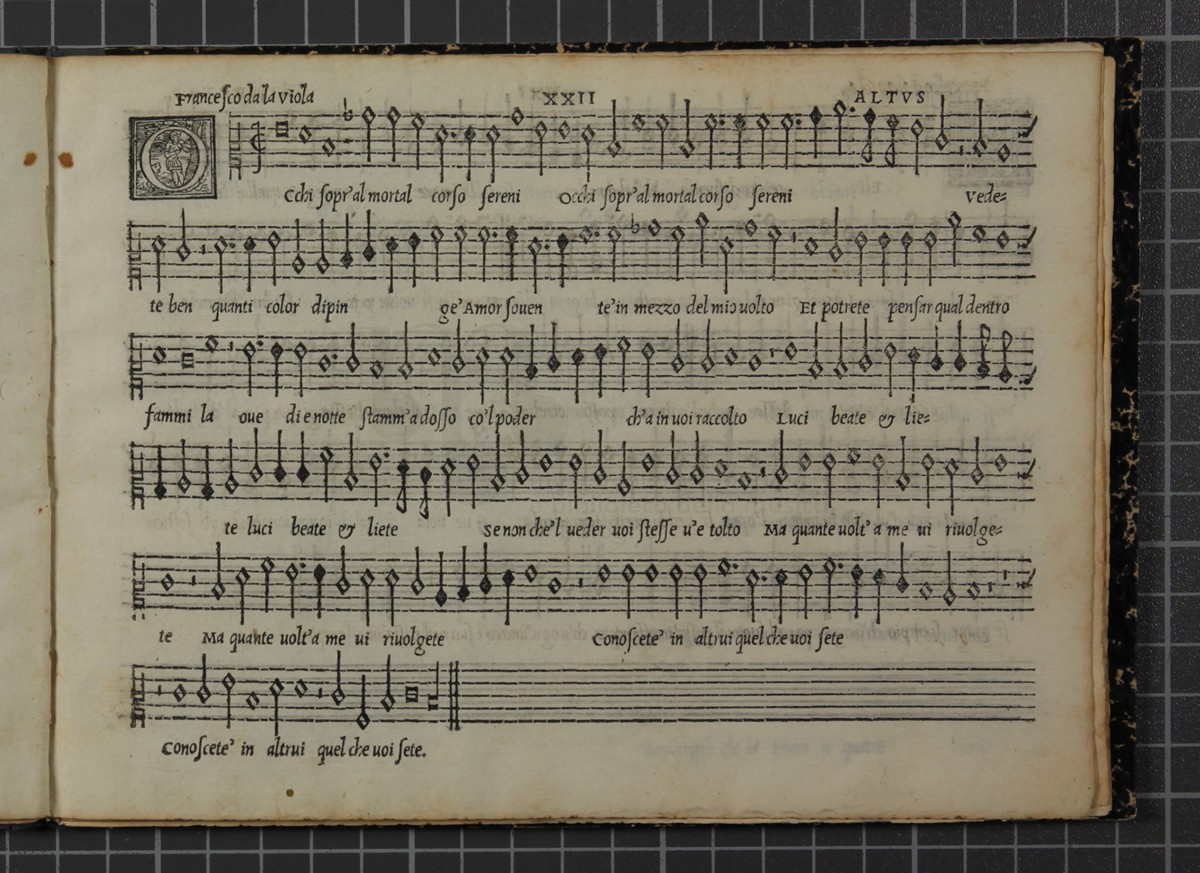 Francesco da la viola XXII ALTVS
OCchi sopr'al mortal corso sereni Occhi sopr'al mortal corso sereni Vede=
te ben quanti color dipin ge' Amor souen te'in mezzo del mio uolto Et potrete pensar qual dentro
fammi la oue di e notte stamm'adosso co'l poder ch'a in uoi raccolto Luci beate & lie=
te luci beate & liete Se non che'l ueder uoi stesse u'e tolto Ma quante uolt'a me ui riuolge=
te Ma quante uolt'a me ui riuolgete Conoscete' in altrui quel che uoi sete
Conoscete' in altrui quel che uoi sete.